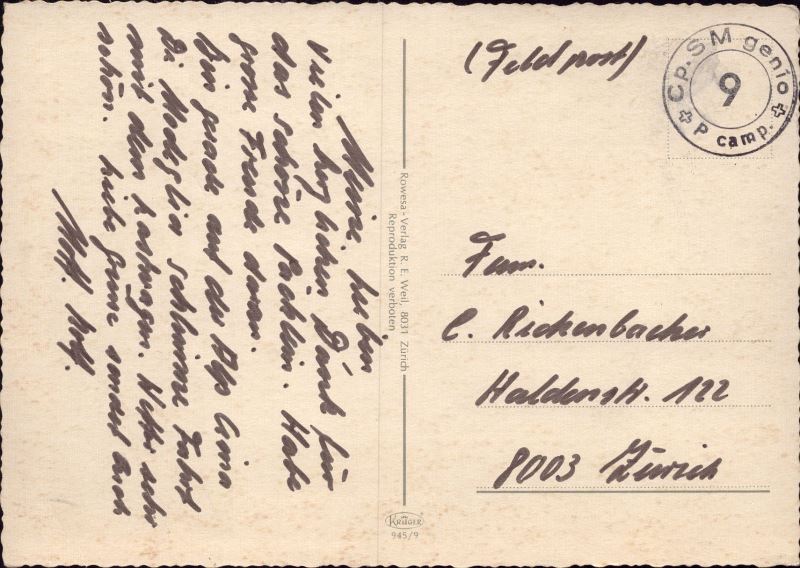 Meine Lieben
Vielen herzlichen Dank für
das schöne Päcklein. Habe
grosse Freude daran.
Bin gerade auf der Alp
di schlimme Fahrt
mit dem Lastwagen. Wetter sehr
schön. Liebe Grüsse sendet Euch
Rowesa-Verlag R. E. Weil, 8031 Zürich
Reproduktion verboten
KRÜGER
945/9
(Feldpost)
Cp. SM genio
9
P camp.
Fam.
C. Rickenbacher
Haldenstr. 122
8003 Zürich